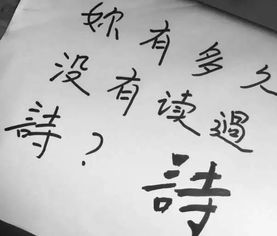 妳有多久
没有读過
詩？
詩